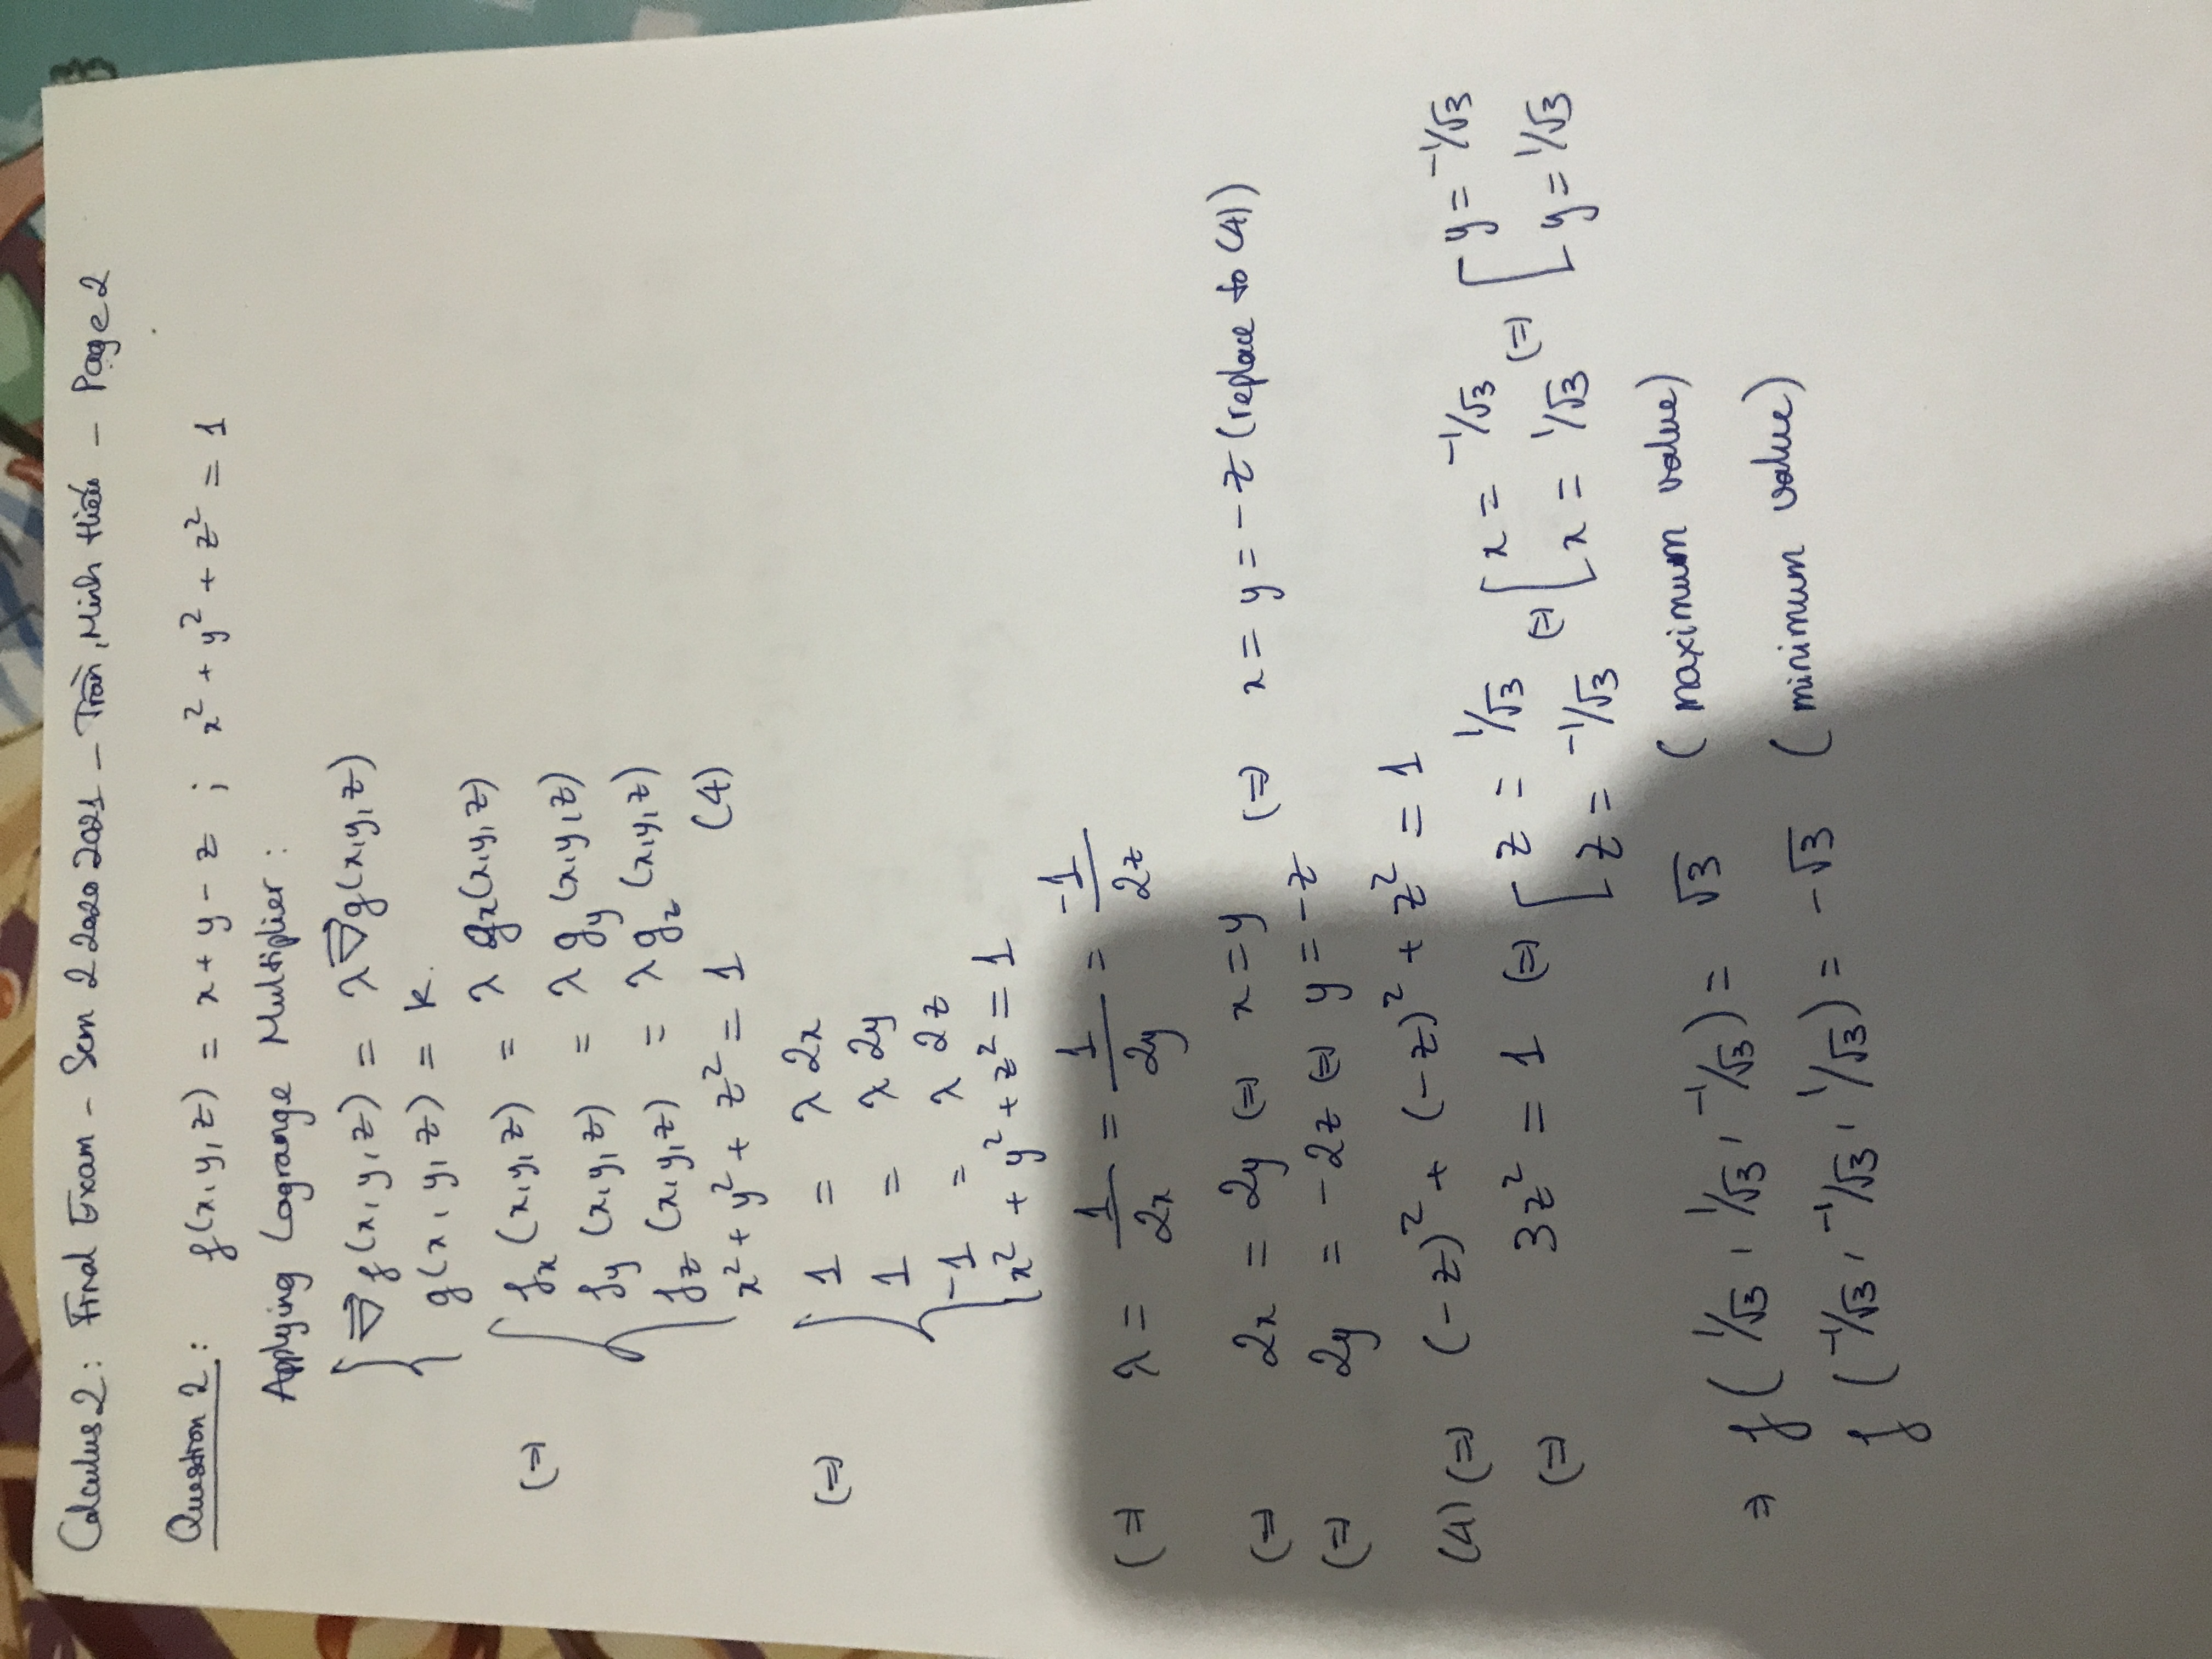 Calculus 2: Final Exam - Sem 2 2020 2021 - Trần, Minh Hiếu - Page 2
Question 2: f(x, y, z) = x + y - z ; x² + y² + z² = 1
Applying Lagrange Multiplier:
{ ∇⃗f(x, y, z) = λ∇⃗g(x, y, z)
g(x, y, z) = k.
(=) { fₓ(x, y, z) = λ gₓ(x, y, z)
f_y(x, y, z) = λ g_y(x, y, z)
f_z(x, y, z) = λ g_z(x, y, z)
x² + y² + z² = 1 (4)
(=) { 1 = λ 2x
1 = λ 2y
-1 = λ 2z
x² + y² + z² = 1
(=) λ = 1/2x = 1/2y = -1/2z
(=) 2x = 2y (=) x = y (=) x = y = -z (replace to (4))
(=) 2y = -2z (=) y = -z
(4) (=) (-z)² + (-z)² + z² = 1
(=) 3z² = 1 (=) [ z = 1/√3 (=) [ x = -1/√3 (=) [ y = -1/√3
z = -1/√3 x = 1/√3 y = 1/√3
⇒ f(1/√3, 1/√3, -1/√3) = √3 (maximum value)
f(-1/√3, -1/√3, 1/√3) = -√3 (minimum value)